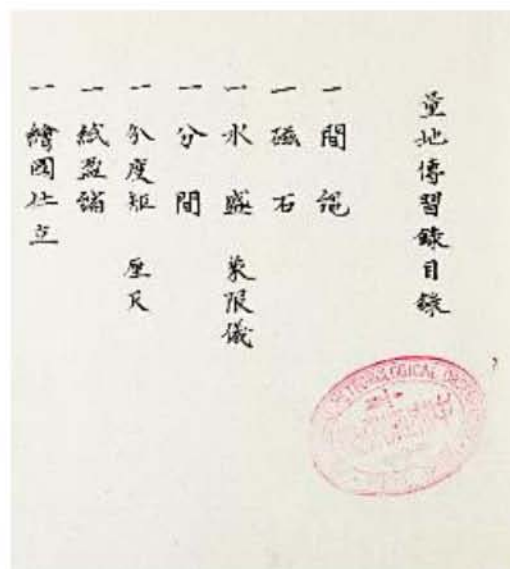 量地傳習錄目錄
一 間繩
一 磁石
一 水盛 象限儀
一 分間
一 分度矩 歴尺
一 紙盈縮
一 繪圖仕立
METEOROLOGICAL